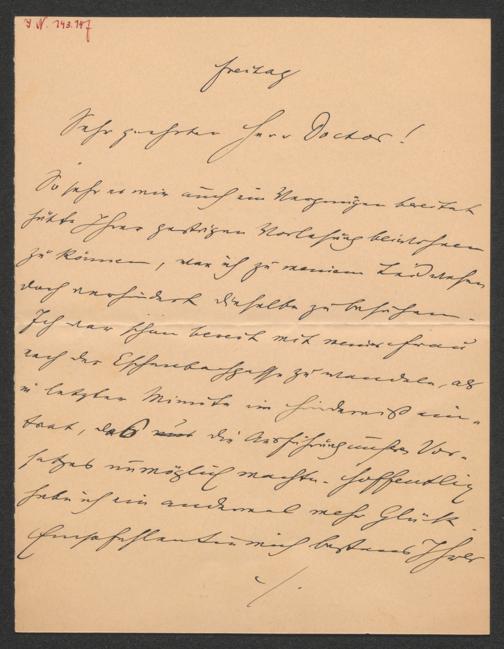 J. N. 143.147
Freitag
Sehr geehrter Herr Doctor!
So sehr es mir auch ein Vergnügen bereitet
hätte Ihrer gestrigen Vorlesung beiwohnen
zu können, war ich zu meinem Leidwesen
doch verhindert dieselbe zu besuchen.
Ich war schon bereit mit meiner Frau
nach der Eschenbachgasse zu wandeln, als
in letzter Minute ein Hinderniß ein-
trat, daß uns die Ausführung unseres Vor-
satzes unmöglich machte. Hoffentlich
habe ich ein anderes mal mehr Glück.
Empfehlen Sie mich bestens Ihrer
./.